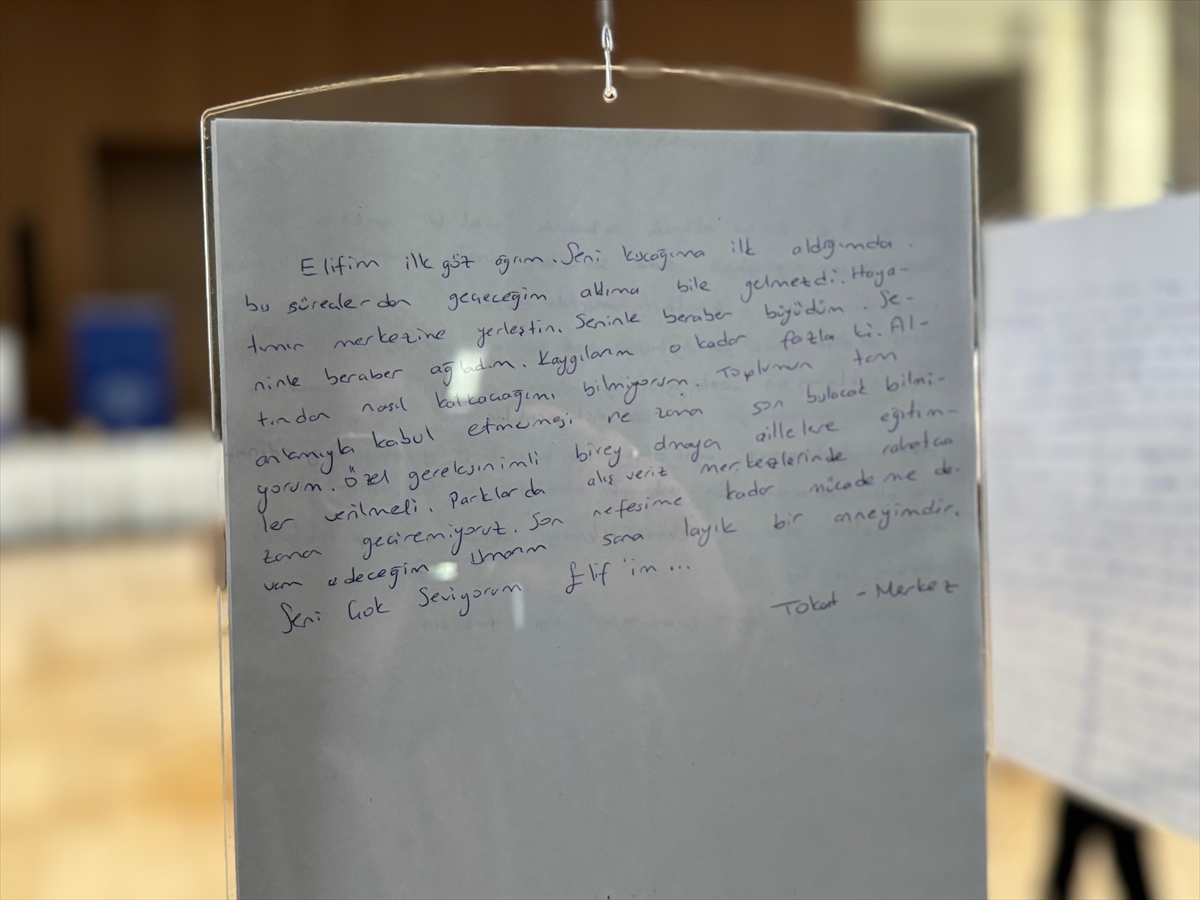 Elifim ilk göz ağrım. Seni kucağıma ilk aldığımda
bu süreclerden geçeceğim aklıma bile gelmezdi. Haya-
tımın merkezine yerleştin. Seninle beraber büyüdüm. Se-
ninle beraber ağladım. Kaygılarım o kadar fazla ki. Al-
tından nasıl kalkacağımı bilmiyorum. Toplumun tam
anlamıyla kabul etmemesi ne zana son bulacak bilmi-
yorum. Özel gereksinimli birey olmayan aillelere eğitim-
ler verilmeli. Parklarda alış veriz merkezlerinde rahatca
zana geciremiyoruz. Son nefesime kadar mücadeleme de-
vam edeceğim Umarım sana layık bir anneyimdir.
Seni Çok Seviyorum Elif'im...
Tokat - Merkez